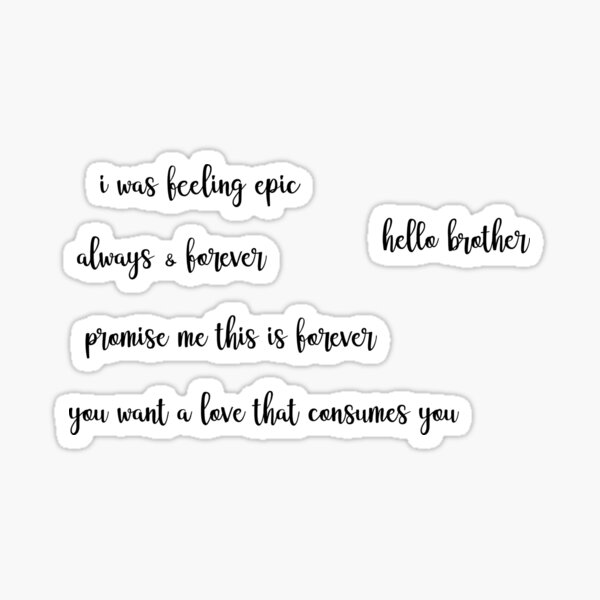 i was feeling epic
always & forever
hello brother
promise me this is forever
you want a love that consumes you